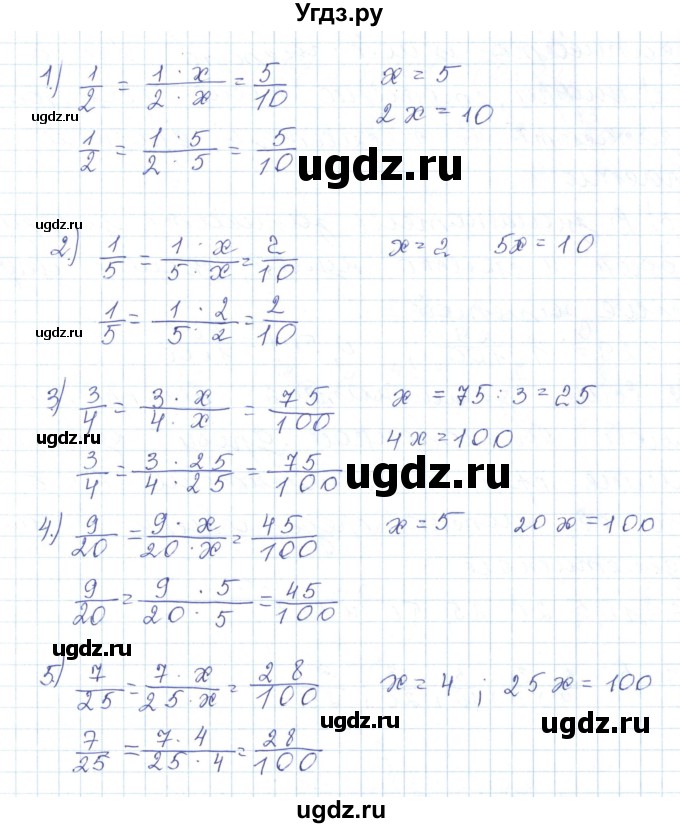 Угдз.ру
1.) 1/2 = (1 · x)/(2 · x) = 5/10 x = 5
2x = 10
ugdz.ru
1/2 = (1 · 5)/(2 · 5) = 5/10
ugdz.ru
ugdz.ru
2.) 1/5 = (1 · x)/(5 · x) = 2/10 x = 2 5x = 10
1/5 = (1 · 2)/(5 · 2) = 2/10
ugdz.ru
3) 3/4 = (3 · x)/(4 · x) = 75/100 x = 75 : 3 = 25
4x = 100
ugdz.ru
3/4 = (3 · 25)/(4 · 25) = 75/100
ugdz.ru
4.) 9/20 = (9 · x)/(20 · x) = 45/100 x = 5 20x = 100
ugdz.ru
9/20 = (9 · 5)/(20 · 5) = 45/100
ugdz.ru
5.) 7/25 = (7 · x)/(25 · x) = 28/100 x = 4 ; 25x = 100
ugdz.ru
ugdz.ru
7/25 = (7 · 4)/(25 · 4) = 28/100
ugdz.ru
ugdz.ru